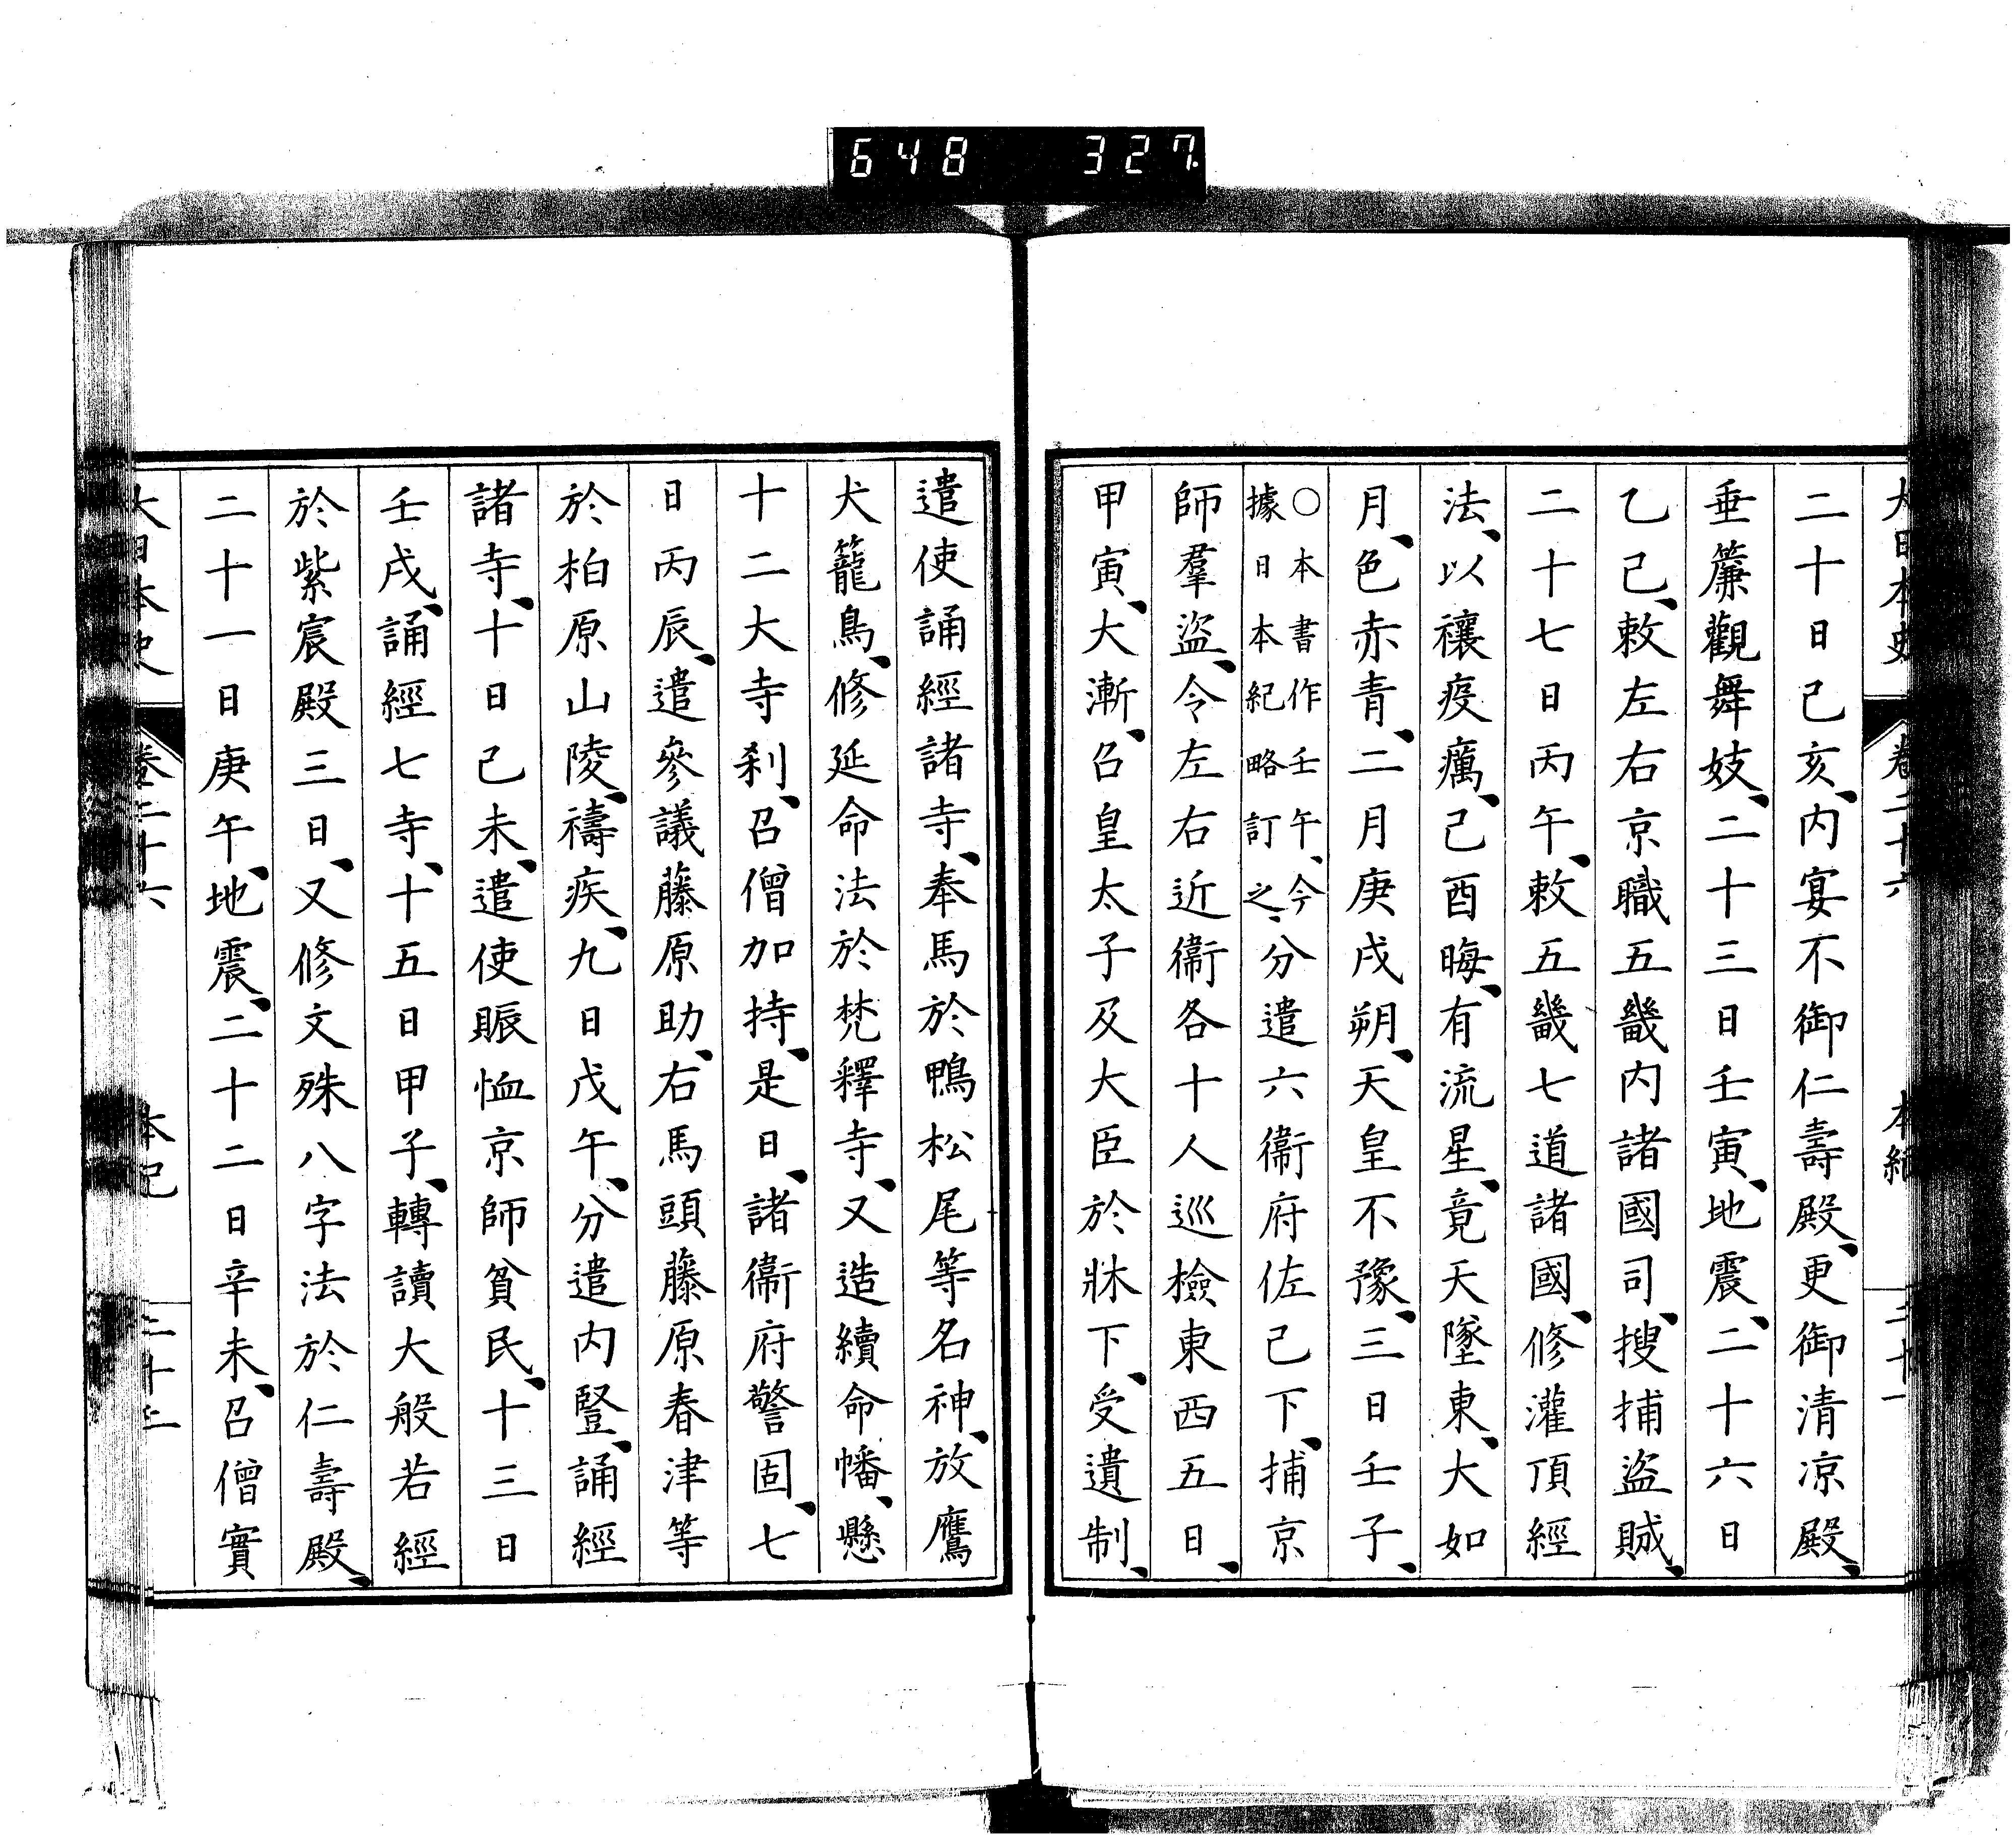 648 327.
大日本史 卷二十六 本紀 三十一
二十日己亥、内宴不御仁壽殿、更御清凉殿、
垂簾觀舞妓、二十三日壬寅、地震、二十六日
乙己、敕左右京職五畿内諸國司、搜捕盜賊、
二十七日丙午、敕五畿七道諸國、修灌頂經
法、以禳疫癘、己酉晦、有流星、竟天墜東、大如
月、色赤青、二月庚戌朔、天皇不豫、三日壬子、
○本書作壬午、今
據日本紀略訂之、分遣六衞府佐己下、捕京
師羣盜、令左右近衞各十人巡檢東西五日、
甲寅、大漸、召皇太子及大臣於牀下、受遺制、
遣使誦經諸寺、奉馬於鴨松尾等名神、放鷹
犬籠鳥、修延命法於梵釋寺、又造續命幡、懸
十二大寺刹、召僧加持、是日、諸衞府警固、七
日丙辰、遣參議藤原助、右馬頭藤原春津等
於柏原山陵、禱疾、九日戊午、分遣内豎、誦經
諸寺、十日己未、遣使賑恤京師貧民、十三日
壬戌、誦經七寺、十五日甲子、轉讀大般若經
於紫宸殿三日、又修文殊八字法於仁壽殿、
二十一日庚午、地震、二十二日辛未、召僧實
大日本史 卷二十六 本紀 三十二